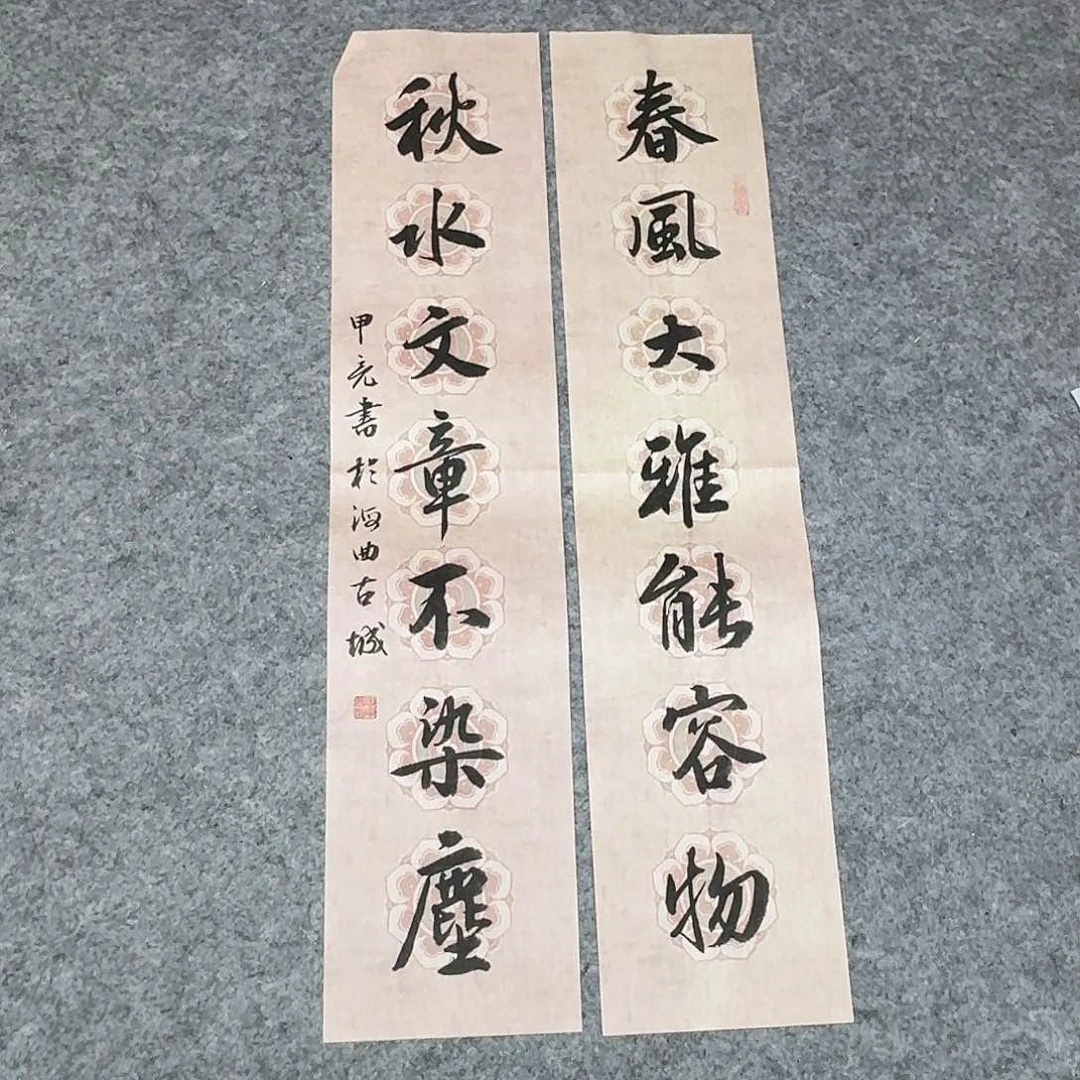 春風大雅能容物
秋水文章不染塵
甲亮書於海曲古城